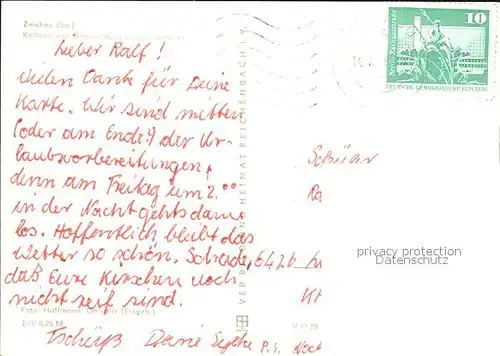 Zwickau (Sa.)
Rathaus
Lieber Ralf!
vielen Dank für Deine
Karte. Wir sind mitten
(oder am Ende?) der Ur-
laubsvorbereitungen,
denn am Freitag um 2.00
in der Nacht gehts dann
los. Hoffentlich bleibt das
Wetter so schön. Schade,
daß Eure Kirschen noch
nicht reif sind.
Foto: Hoffmann,
EVP 0,25 M
Tschüß Deine
P.S. Noch
VEB BILD UND HEIMAT REICHENBACH V
10
DEUTSCHE DEMOKRATISCHE REPUBLIK
Schüler
Ra
6426
privacy protection
Datenschutz